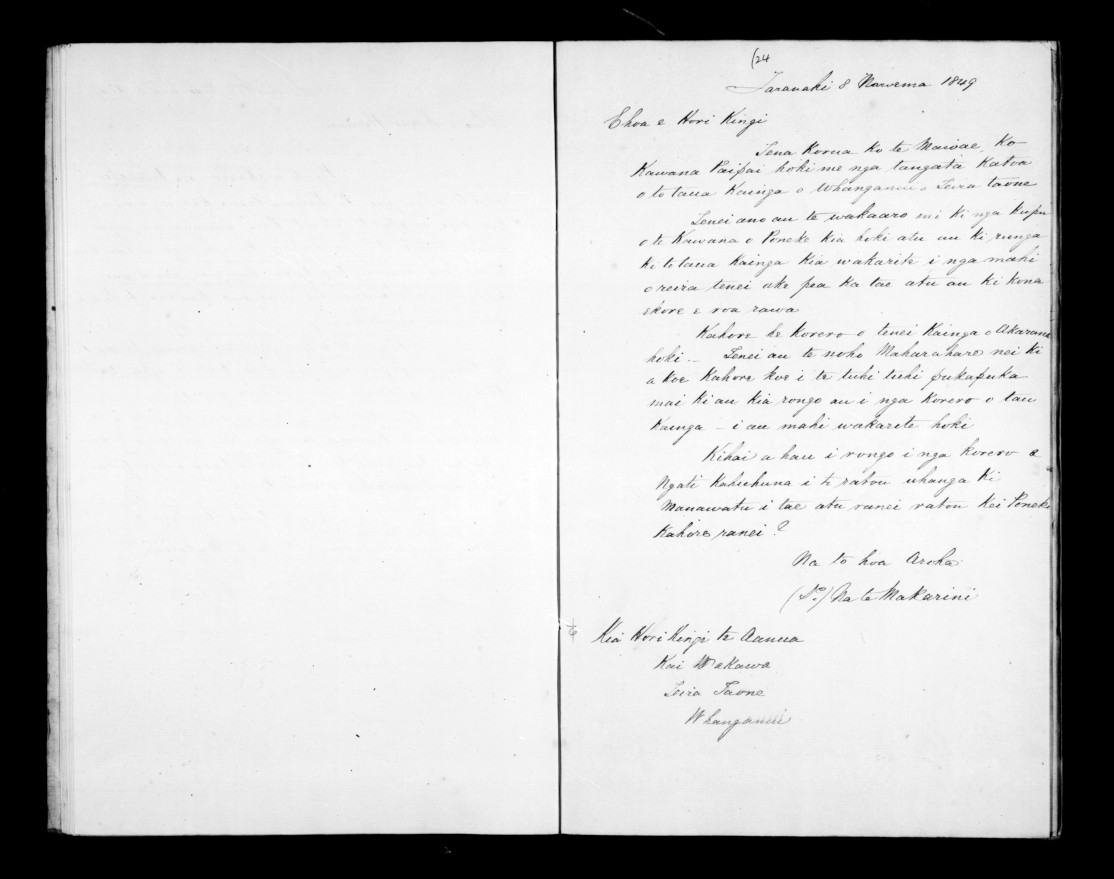 (24
Taranaki 8 Nowema 1849
Ehoa e Hori Kingi
Tena Korua ko te Mawae, Ko
Kawana Paipai hoki me nga tangata Katoa
o to taua Kainga o Whanganui o Teira taone
Tenei ano au te wakaaro nei ki nga kupu
o te Kawana o Poneke kia hoki atu au ki runga
ki to taua kainga kia wakarite i nga mahi
o reira tenei ake pea ka tae atu au ki kona
ekore e roa rawa
Kahore he korero o tenei Kainga o Akarana
hoki - Tenei au te noho Maharahara nei ki
a koe Kahore koe i te tuhi tuhi pukapuka
mai ki au kia rongo au i nga korero o tau
Kainga - i au mahi wakarite hoki
Kihai a hau i rongo i nga korero a
Ngati Kahuhunu i to ratou uhanga ki
Manawatu i tae atu ranei ratou kei Poneke
Kahore ranei?
Na to hoa Aroha
(Sd.) Na te Makarini
Kia Hori Kingi te Aanua
Kai Wakawa
Teira Taone
Whanganui